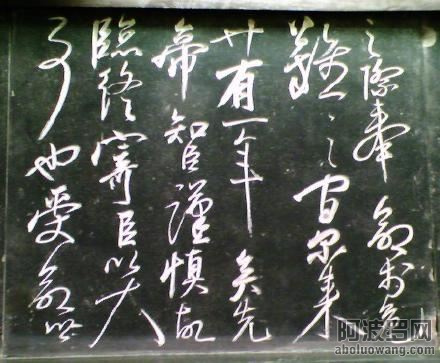 之際奉命於危
難之間爾来
廿有一年矣先
帝知臣謹慎故
臨終寄臣以大
事也受命以
阿波罗网
aboluowang.com